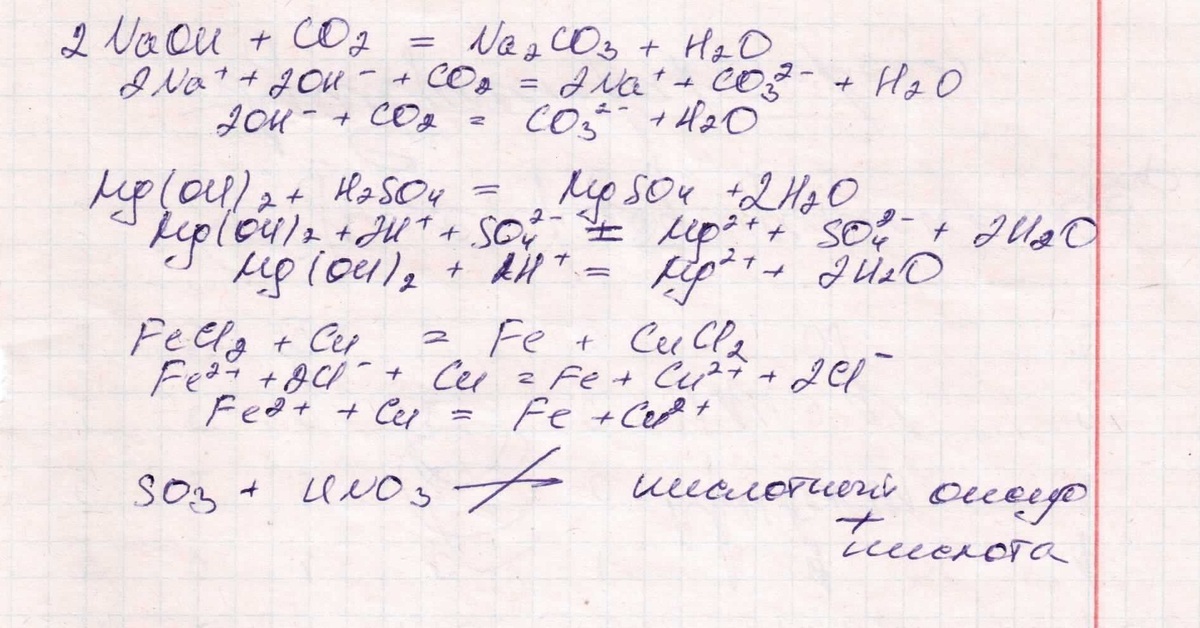 2NaOH + CO₂ = Na₂CO₃ + H₂O
2Na⁺ + 2OH⁻ + CO₂ = 2Na⁺ + CO₃²⁻ + H₂O
2OH⁻ + CO₂ = CO₃²⁻ + H₂O
Mg(OH)₂ + H₂SO₄ = MgSO₄ + 2H₂O
Mg(OH)₂ + 2H⁺ + SO₄²⁻ = Mg²⁺ + SO₄²⁻ + 2H₂O
Mg(OH)₂ + 2H⁺ = Mg²⁺ + 2H₂O
FeCl₂ + Cu = Fe + CuCl₂
Fe²⁺ + 2Cl⁻ + Cu = Fe + Cu²⁺ + 2Cl⁻
Fe²⁺ + Cu = Fe + Cu²⁺
SO₃ + HNO₃ ↛ кислотный оксид
+
кислота